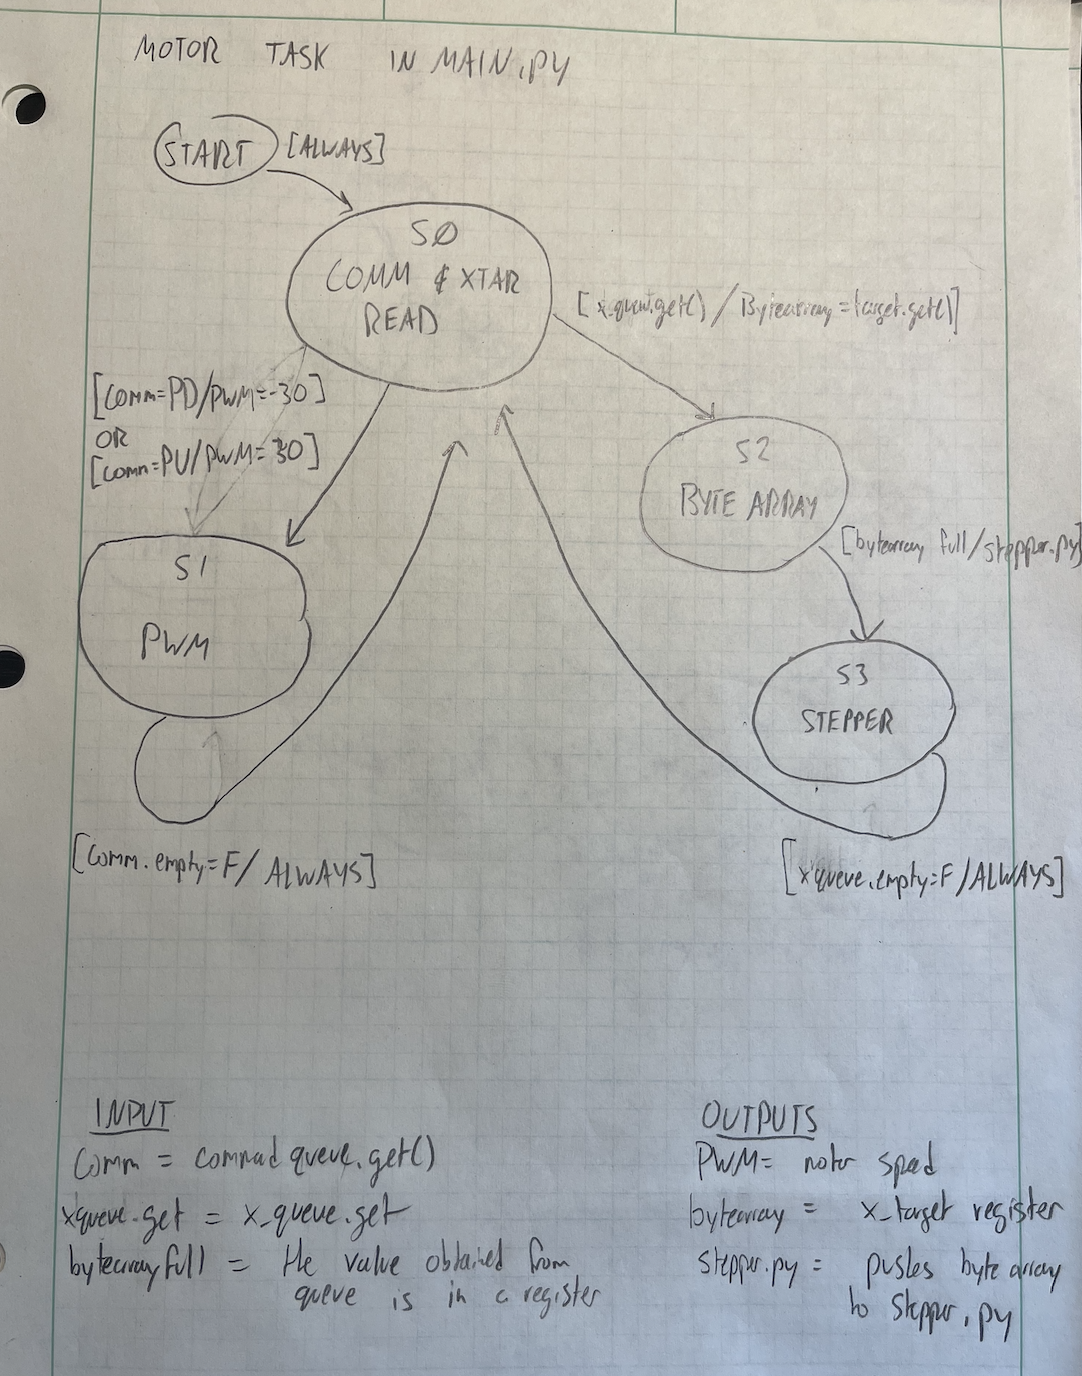 MOTOR TASK IN MAIN.PY
START [ALWAYS]
S0
COMM & XTAR
READ
[x_queue.get() / Bytearray = target.get()]
[Comm=PD/PWM=-30]
OR
[Comm=PU/PWM=30]
S2
BYTE ARRAY
[bytearray full/stepper.py]
S1
PWM
S3
STEPPER
[Comm.empty=F/ ALWAYS]
[xqueue.empty=F/ALWAYS]
INPUT
Comm = commad queue.get()
xqueue.get = x_queue.get
bytearray full = the value obtained from
queue is in a register
OUTPUTS
PWM= motor speed
bytearray = x_target register
stepper.py = pushes byte array
to stepper.py